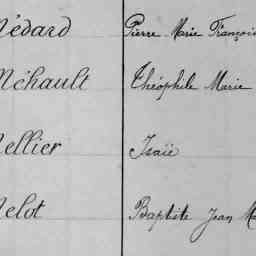 Médard Pierre Marie François
Méhault Théophile Marie
Mellier Isaïe
Melot Baptiste Jean M